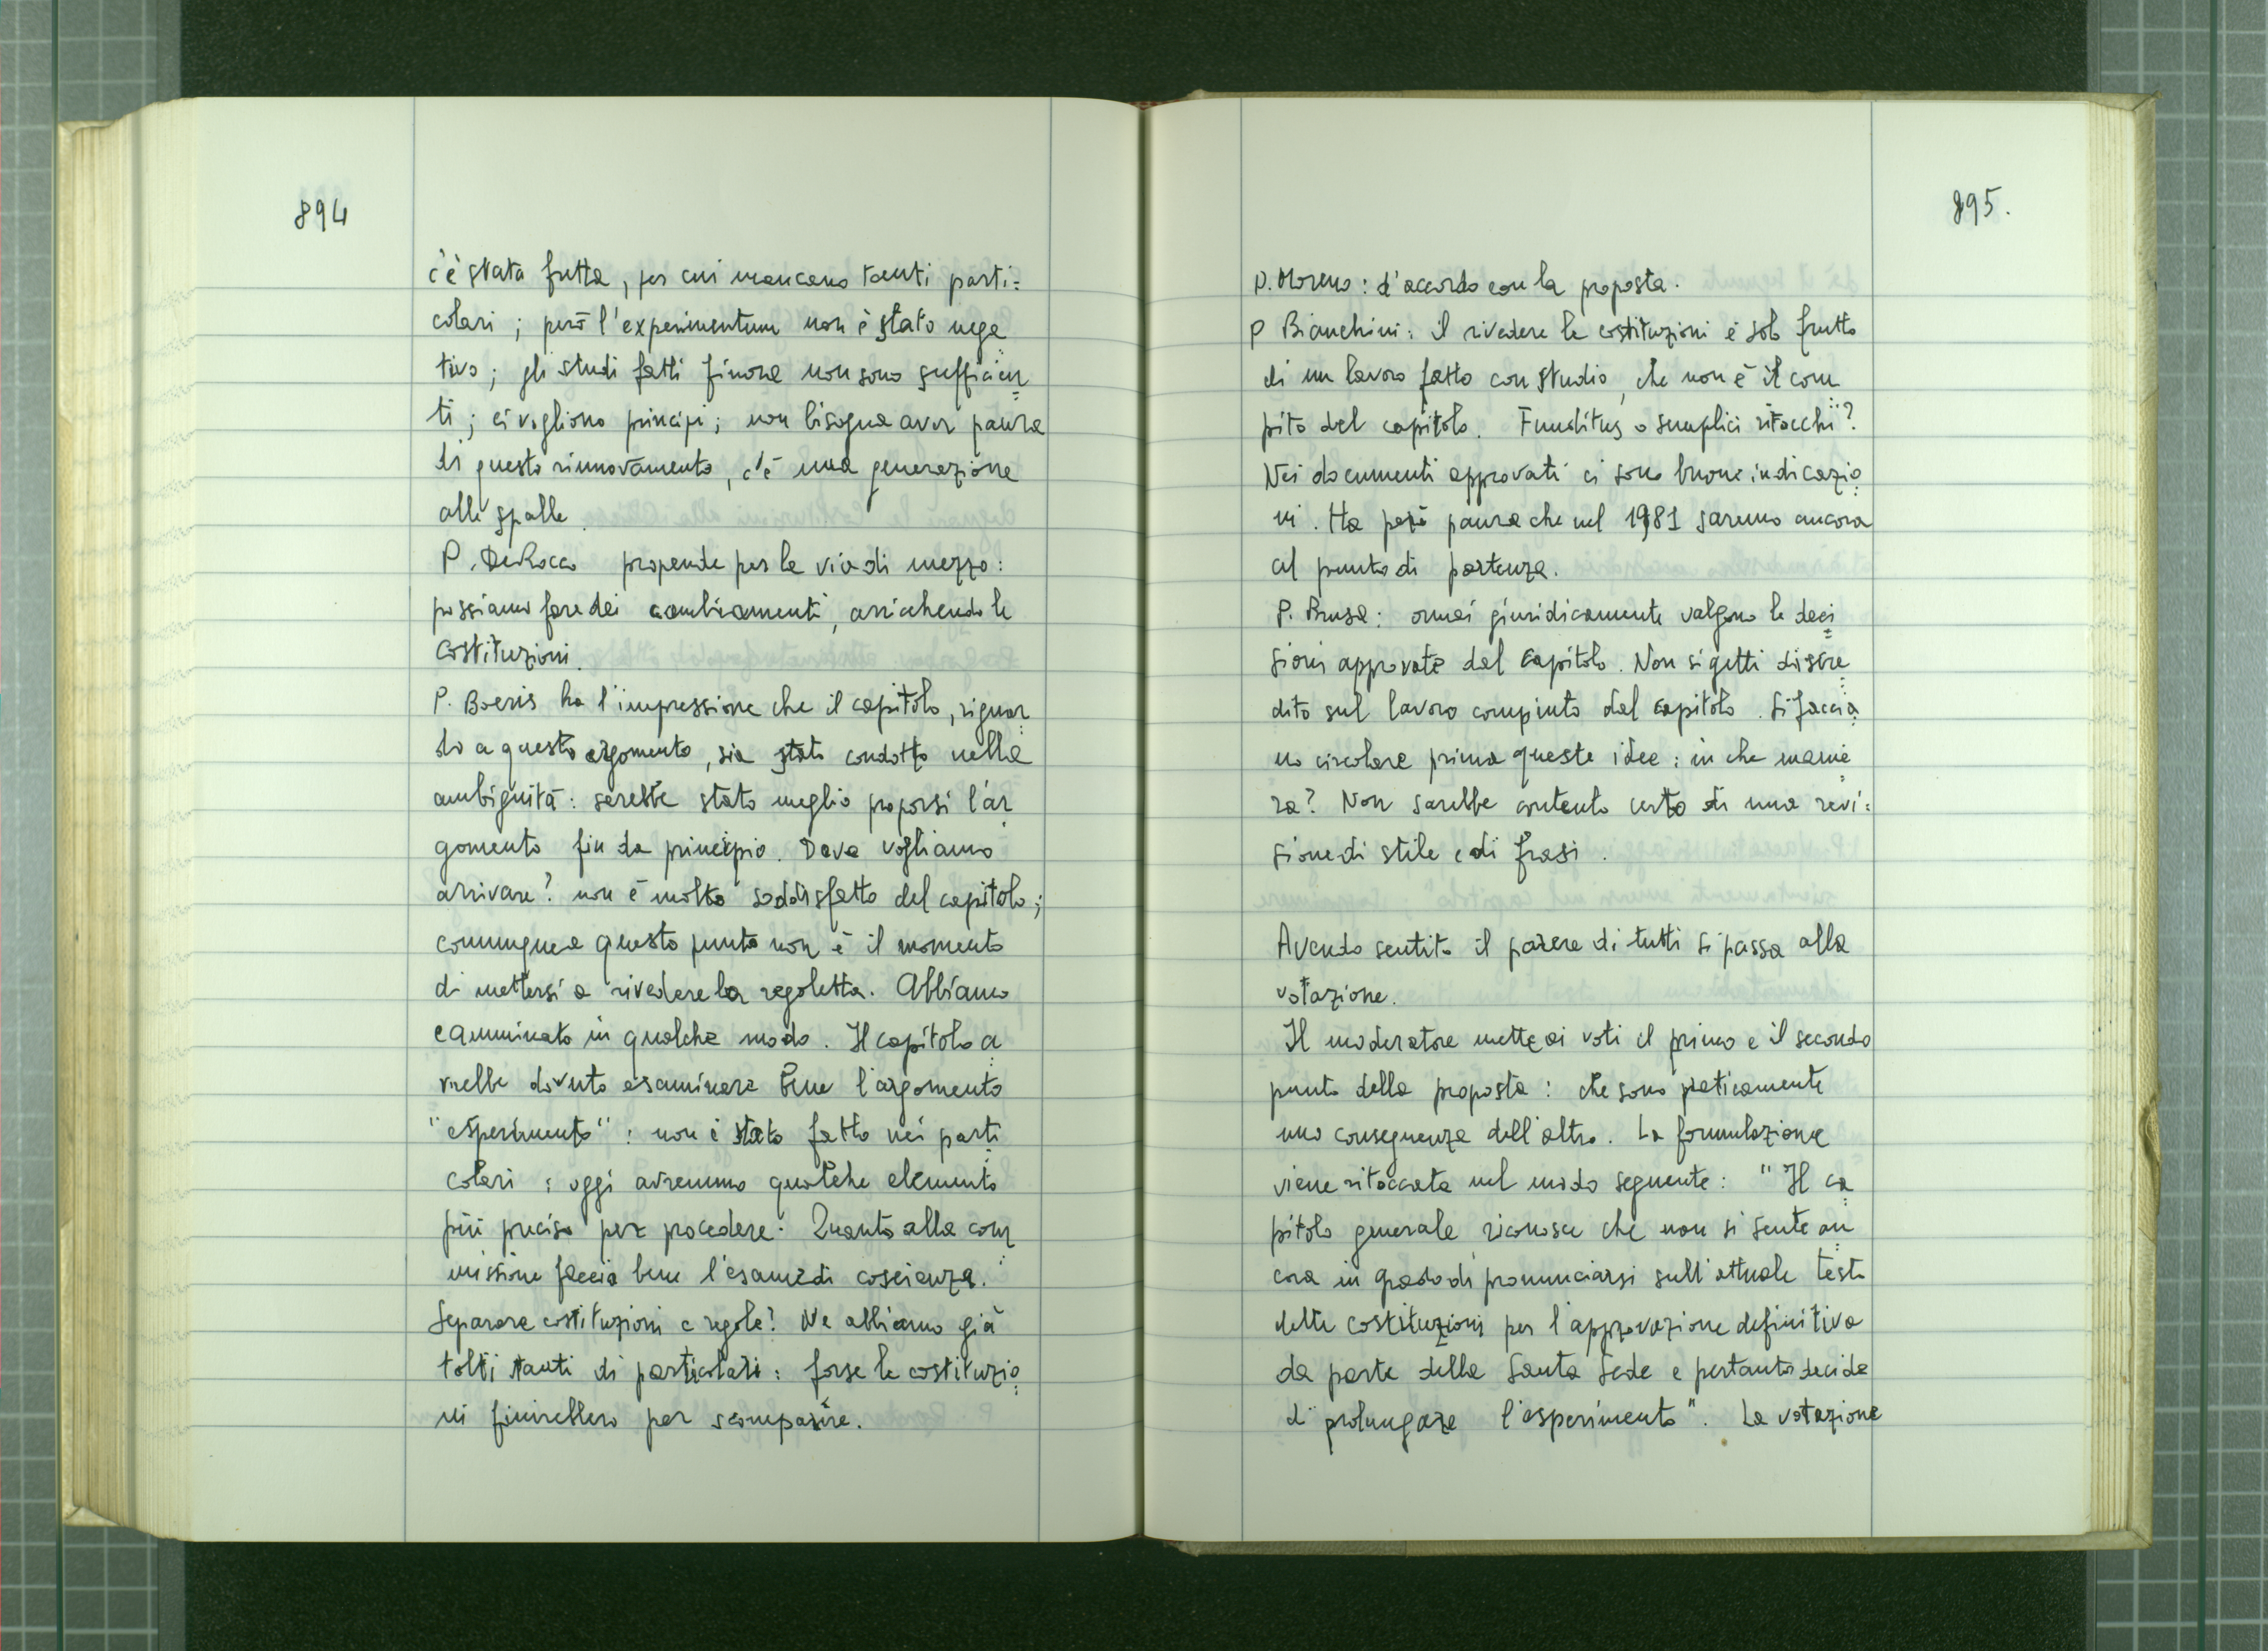 894
c'è stata fretta, per cui mancano tanti parti=
colari; però l'experimentum non è stato nega
tivo; gli studi fatti finora non sono sufficien
ti; ci vogliono principi; non bisogna aver paura
di questo rinnovamento, c'è una generazione
alle spalle.
P. DeRocco propende per la via di mezzo:
possiamo fare dei cambiamenti, arricchendo le
costituzioni.
P. Boeris ha l'impressione che il capitolo, riguar
do a questo argomento, sia stato condotto nella
ambiguità: sarebbe stato meglio proporsi l'ar
gomento fin da principio. Dove vogliamo
arrivare? non è molto soddisfatto del capitolo;
comunque a questo punto non è il momento
di mettersi a rivedere la regoletta. Abbiamo
camminato in qualche modo. Il capitolo a
vrebbe dovuto esaminare bene l'argomento
"esperimento": non è stato fatto nei parti
colari: oggi avremmo qualche elemento
più preciso per procedere. Quanto alla com
missione faccia bene l'esame di coscienza.
Separare costituzioni e regole? Ne abbiamo già
tolti tanti di particolari: forse le costituzio
ni finirebbero per scomparire.
895.
P. Moreno: d'accordo con la proposta.
P Bianchini: il rivedere le costituzioni è solo frutto
di un lavoro fatto con studio, che non è il com
pito del capitolo. Funditus o semplici ritocchi?
Nei documenti approvati ci sono buone indicazio
ni. Ha però paura che nel 1981 saremo ancora
al punto di partenza.
P. Brusa: ormai giuridicamente valgono le deci
sioni approvate dal Capitolo. Non si getti discre
dito sul lavoro compiuto dal capitolo. Si faccia
no circolare prima queste idee: in che manie
ra? Non sarebbe contento certo di una revi=
sione di stile e di frasi.
Avendo sentito il parere di tutti si passa alla
votazione.
Il moderatore mette ai voti il primo e il secondo
punto della proposta: che sono praticamente
uno conseguenza dell'altro. La formulazione
viene ritoccata nel modo seguente: "Il ca
pitolo generale riconosce che non si sente an
cora in grado di pronunciarsi sull'attuale testo
delle costituzioni per l'approvazione definitiva
da parte della Santa Sede e pertanto decide
di prolungare l'esperimento". La votazione